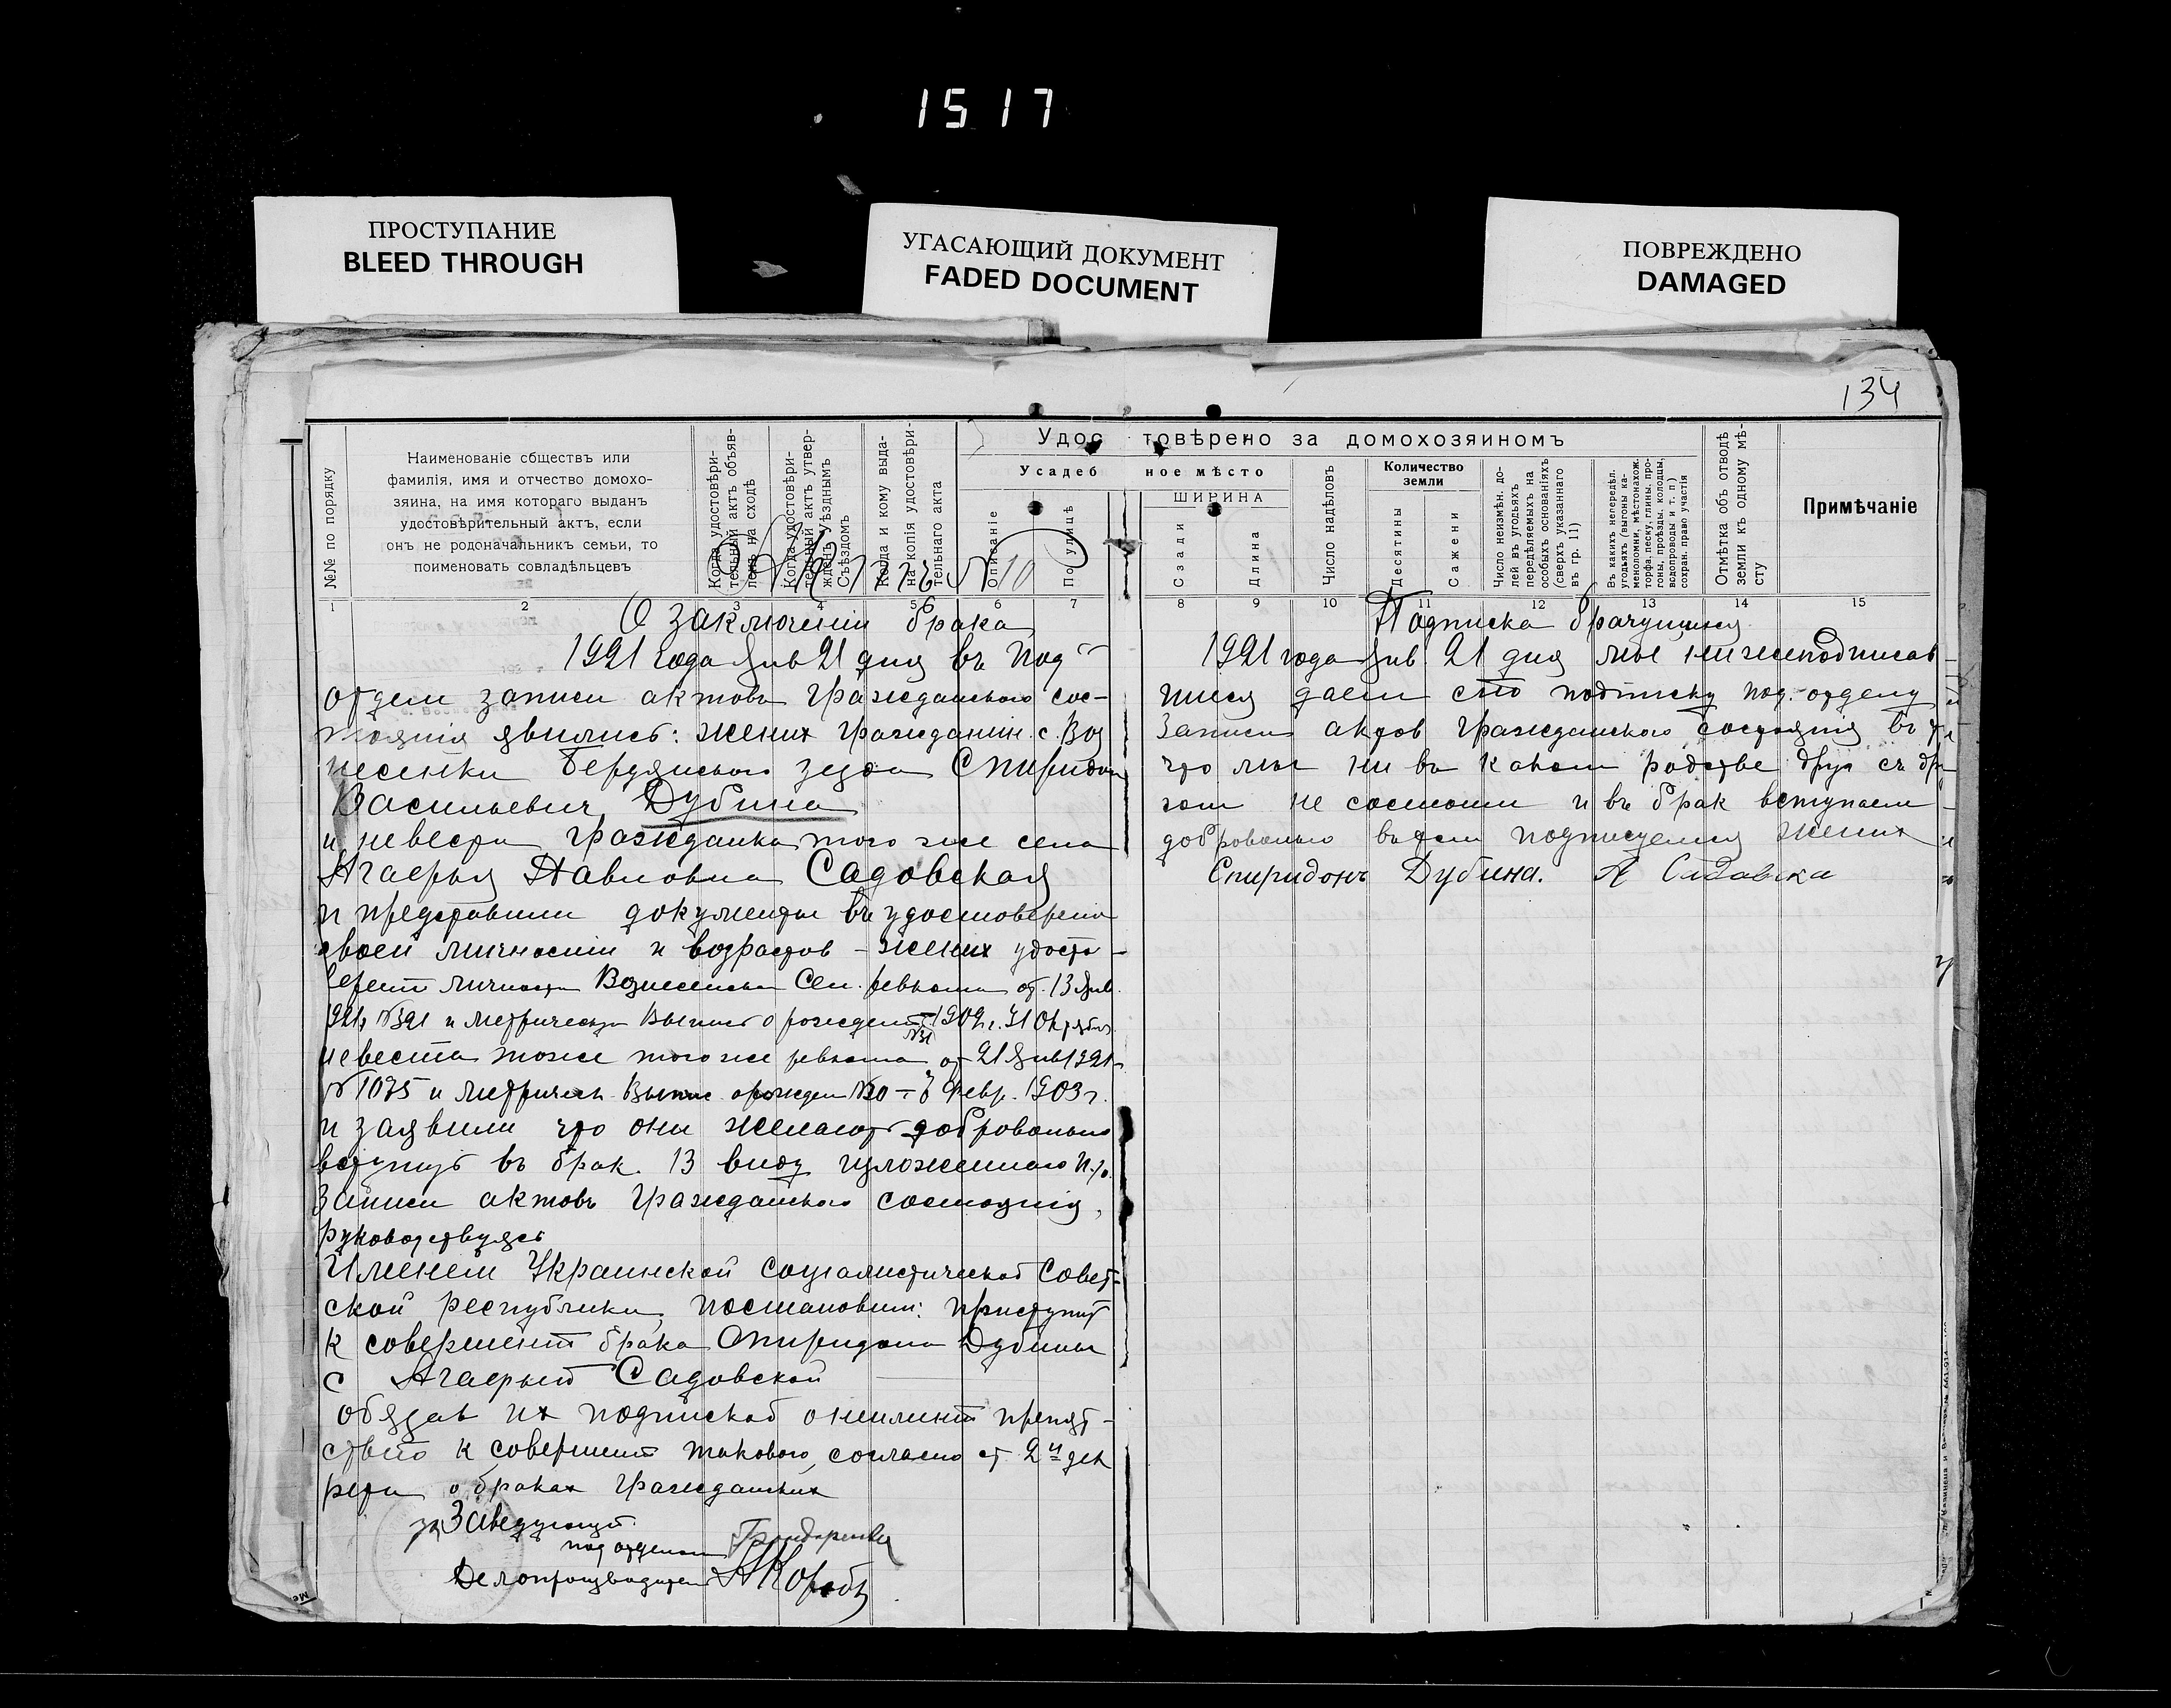 1517
ПРОСТУПАНИЕ
BLEED THROUGH
УГАСАЮЩИЙ ДОКУМЕНТ
FADED DOCUMENT
ПОВРЕЖДЕНО
DAMAGED
134
№№ по порядку
Наименованіе обществъ или
фамилія, имя и отчество домохо-
зяина, на имя котораго выданъ
удостовѣрительный актъ, если
онъ не родоначальникъ семьи, то
поименовать совладѣльцевъ
Когда удостовѣри-
тельный актъ объяв-
ленъ на сходѣ
Когда удостовѣри-
тельный актъ утвер-
жденъ Уѣзднымъ
Съѣздомъ
Когда и кому выда-
на копія удостовѣри-
тельнаго акта
Удостовѣрено за домохозяиномъ
Усадебное мѣсто
Описаніе
По улицѣ
ШИРИНА
Сзади
Длина
Число надѣловъ
Количество
земли
Десятины
Сажени
Число неизмѣн. до-
лей въ угодьяхъ
передѣляемыхъ на
особыхъ основаніяхъ
(сверхъ указаннаго
въ гр. 11)
Въ какихъ непередѣл.
угодьяхъ (выгоны ка-
меноломни, мѣстонахож.
торфа, песку, глины, про-
гоны, проѣзды, колодцы,
водопроводы и т. п)
сохран. право участія
Отмѣтка объ отводѣ
земли къ одному мѣ-
сту
Примѣчаніе
1 2 3 4 5 6 7 8 9 10 11 12 13 14 15
№ 10
О заключении брака
1921 года Янв 21 дня въ Под
отдел записи актовъ Гражданского сос-
тояния явились: жених Гражданин. с. Воз
несенки Бердянского уезда Спиридон
Васильевич Дубина
и невеста Гражданка того же села
Агафья Павловна Садовская
и представили документы въ удостоверение
своей личности и возрастов – жених удосто-
верение личности Вознесенского Сел. ревкома от 13 Янв.
921г №321 и метрическую Выпись о рождении 1902г. 31 Октября
№31
невеста тоже того же ревкома от 21 Янв 1921г
№1035 и метрическ. Выпис о рожден №20 – 3 Февр. 1903 г.
и заявили что они желают добровольно
вступить въ брак. В виду изложенного п/о.
Записи актовъ Гражданского состояния,
руководствуясь
Именем Украинской социалистической Совет-
ской республики, постановил: приступить
к совершению брака Спиридона Дубины
с Агафьей Садовской
обязав их подпиской о неимении препят-
ствий к совершению такового, согласно ст 2й дек
рета о браках Гражданских
за Заведующ.
под отделом
Делопроизводитель
Подписка брачущихся
1921 года Янв 21 дня мы нижеподписав-
шиеся даем сию подписку под. отделу
Записи актов Гражданского состояния въ
что мы ни въ каком родстве друг съ дру
гом не состоим и въ брак вступаем
добровольно въ чем подписуемся жених
Спиридонъ Дубина. А Садавска